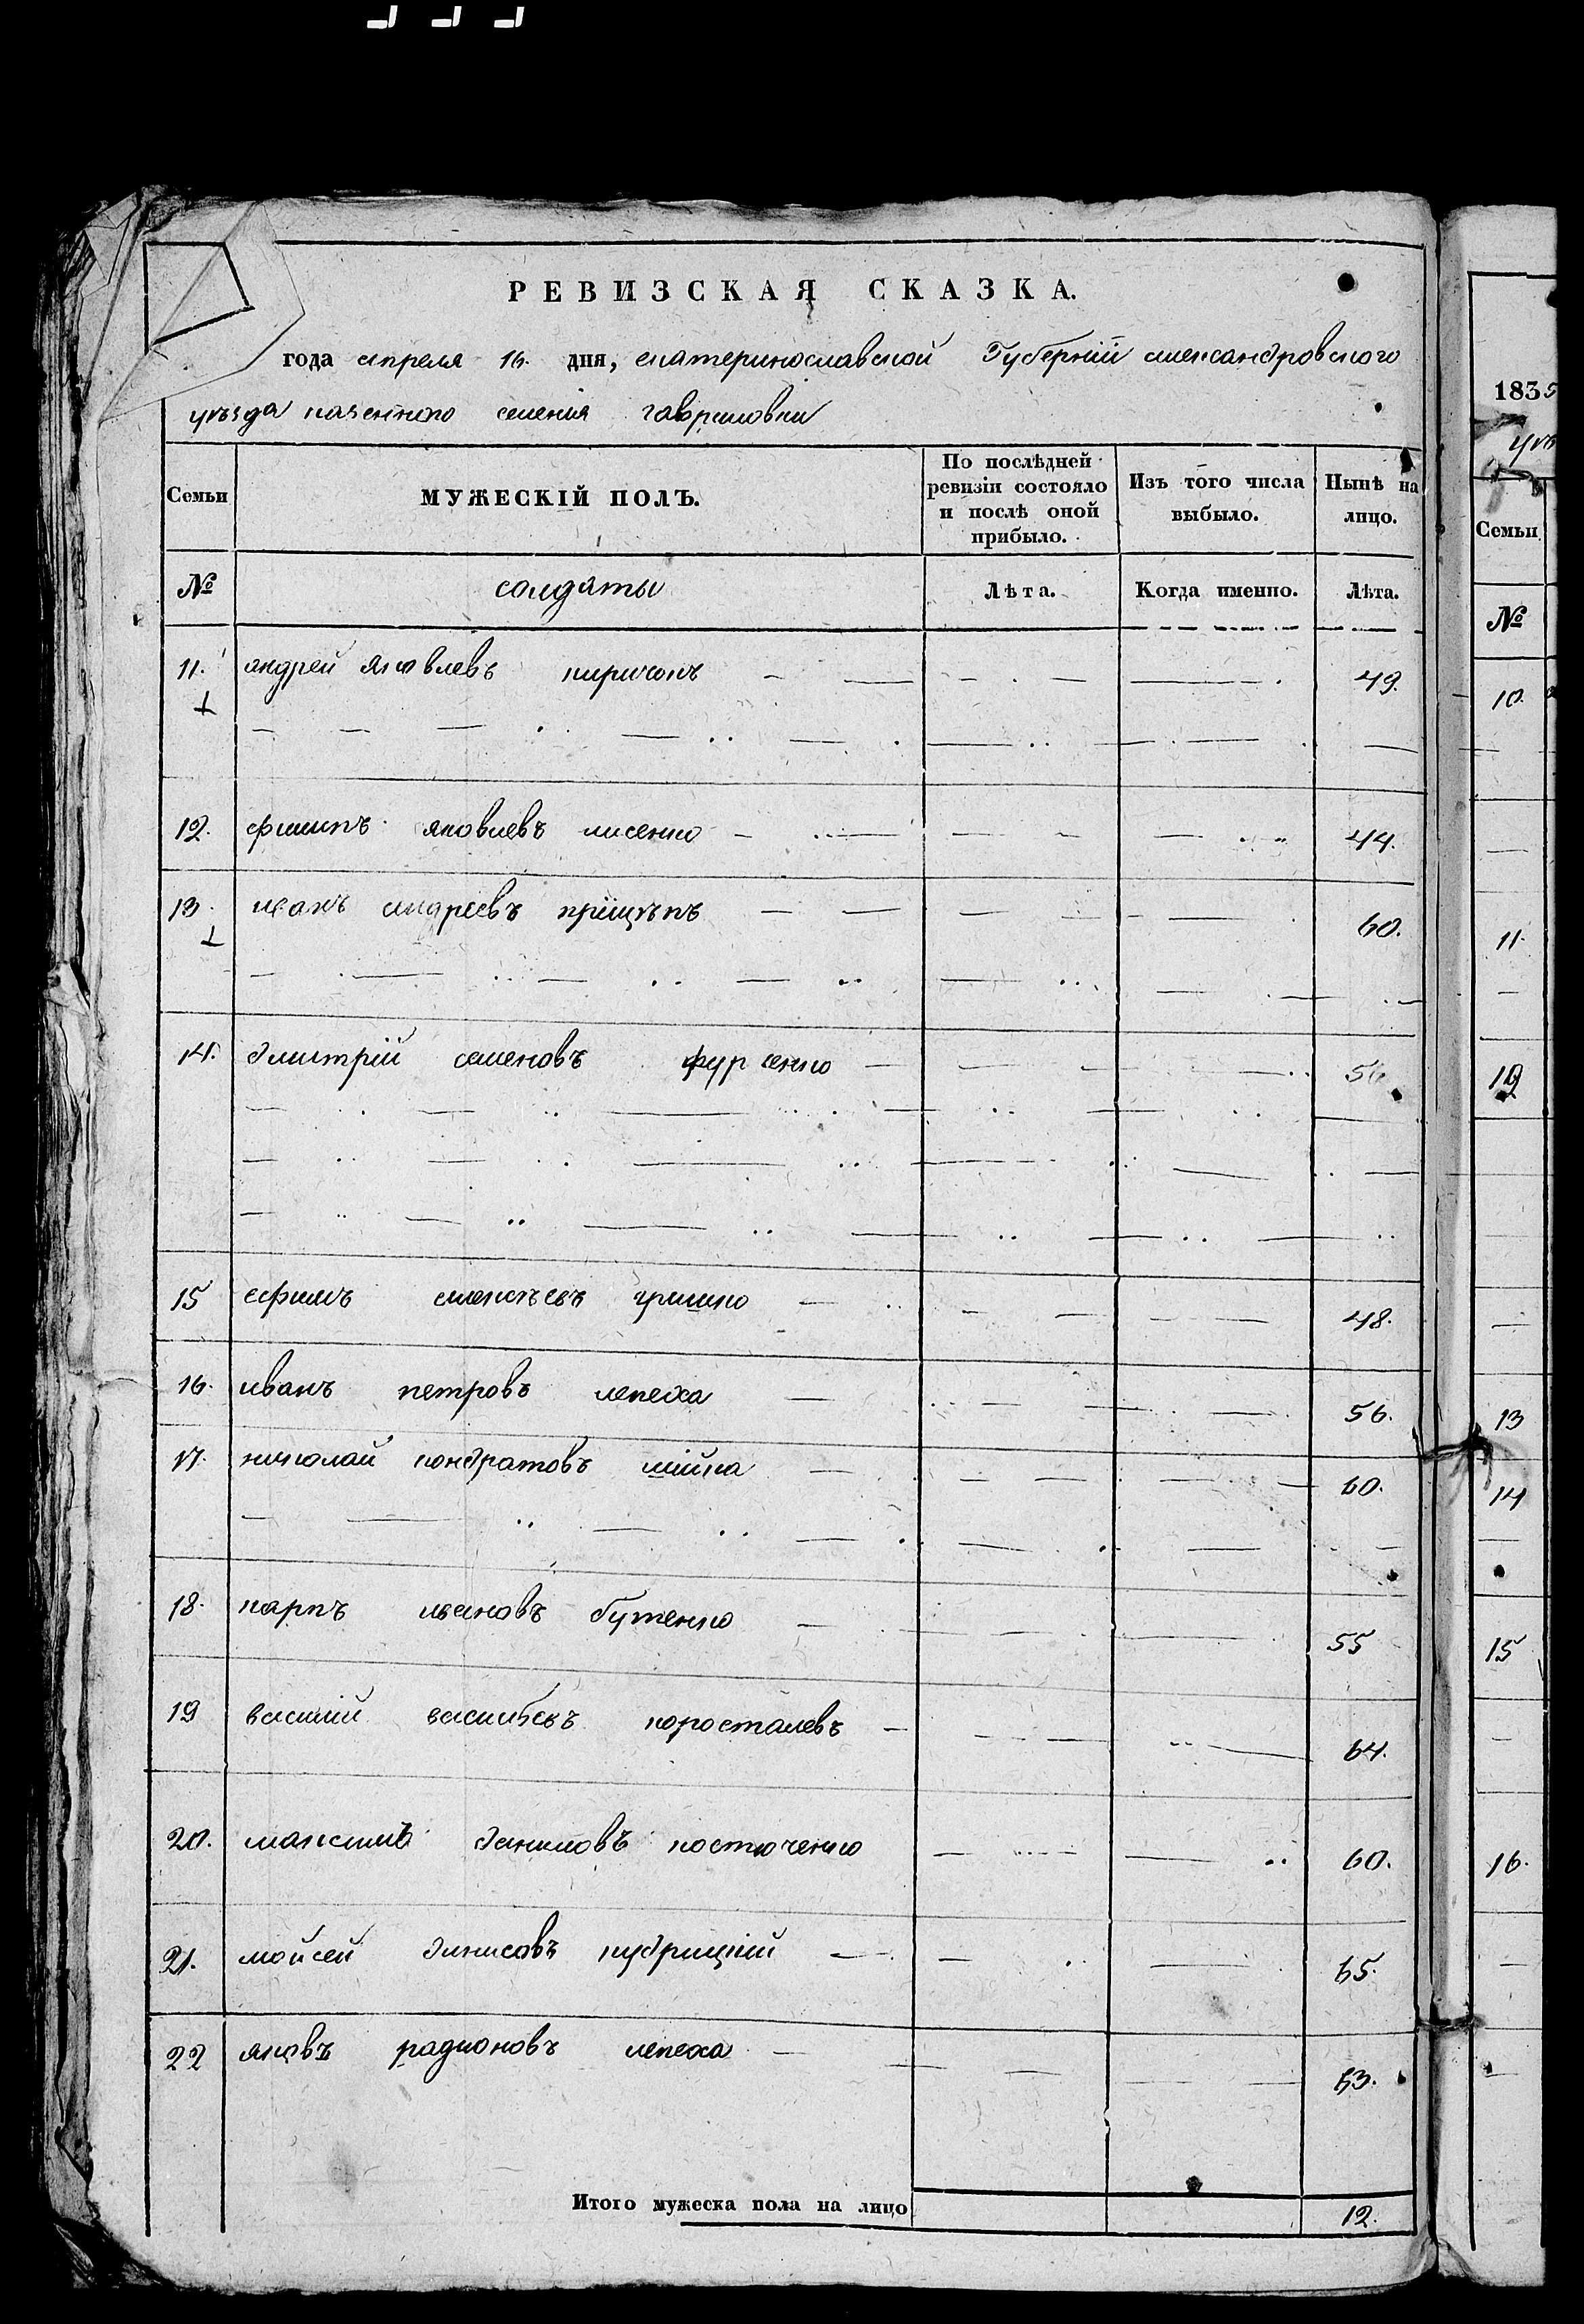 РЕВИЗСКАЯ СКАЗКА.
года апреля 16. дня, екатеринославской Губерніи александровского
уѣзда казенного селения гавриловки
Семьи
МУЖЕСКІЙ ПОЛЪ.
По послѣдней ревизіи состояло и послѣ оной прибыло.
Изъ того числа выбыло.
Нынѣ на лицо.
№ солдаты Лѣта. Когда именно. Лѣта.
11. андрей яковлевъ киричокъ 49.
12. филипъ яковлевъ лисенко 44.
13. иванъ андреевъ пріщъпъ 60.
14. дмитрій семеновъ фурсенко 56
15 ефимъ алексѣевъ гришко 48.
16. иванъ петровъ лепеха 56.
17. николай кондратовъ 60.
18. карпъ ивановъ бутенко 55
19 василій васильевъ коросталевъ 64.
20. максимъ даниловъ костюченко 60.
21. мойсей динисовъ кудрицкій 65.
22 яковъ радионовъ лепеха 63.
Итого мужеска пола на лицо 12.
1835
уѣ
Семьи
№
10.
11.
12
13
14
15
16.